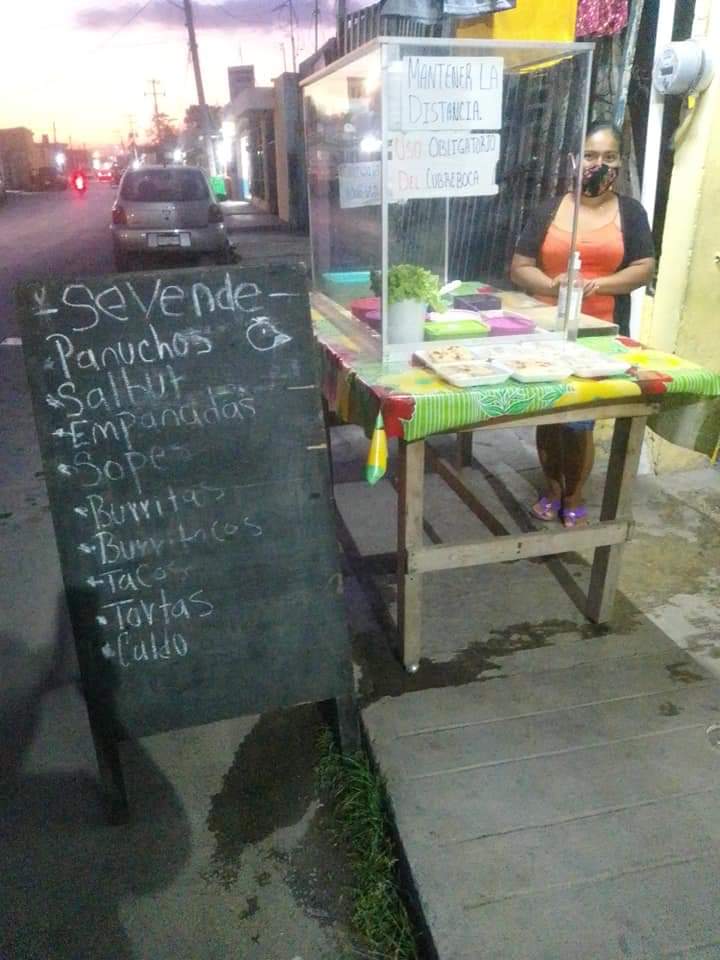 MANTENER LA
DISTANCIA.
USO OBLIGATORIO
DEL CUBREBOCA
- SeVende -
Panuchos
Salbut
Empanadas
Sopes
Burritas
Burritacos
Tacos
Tortas
Caldo